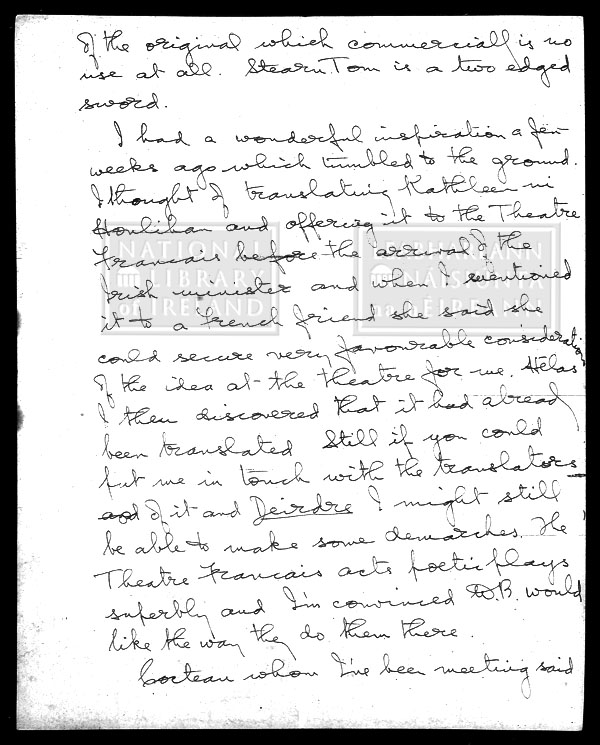 of the original which commercially is no
use at all. Stearn. Tom is a two edged
sword.
I had a wonderful inspiration a few
weeks ago which tumbled to the ground.
I thought of translating Kathleen ni
Houlihan and offering it to the Theatre
Francais before the arrival of the
Irish minister and when I mentioned
it to a French friend she said she
could secure very favourable consideration
of the idea at the theatre for me. Helas
I then discovered that it had already
been translated Still if you could
put me in touch with the translators
of it and Deirdre I might still
be able to make some demarches. The
Theatre Francais acts poetic plays
superbly and I'm convinced W.B. would
like the way they do them there.
Cocteau whom I've been meeting said
NATIONAL LIBRARY of IRELAND
LEABHARLANN NÁISIÚNTA na hÉIREANN